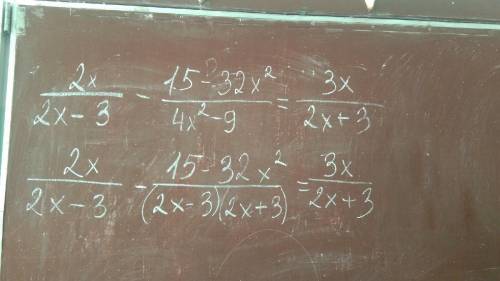 2x/(2x-3) - (15-32x²)/(4x²-9) = 3x/(2x+3)
2x/(2x-3) - (15-32x²)/((2x-3)(2x+3)) = 3x/(2x+3)